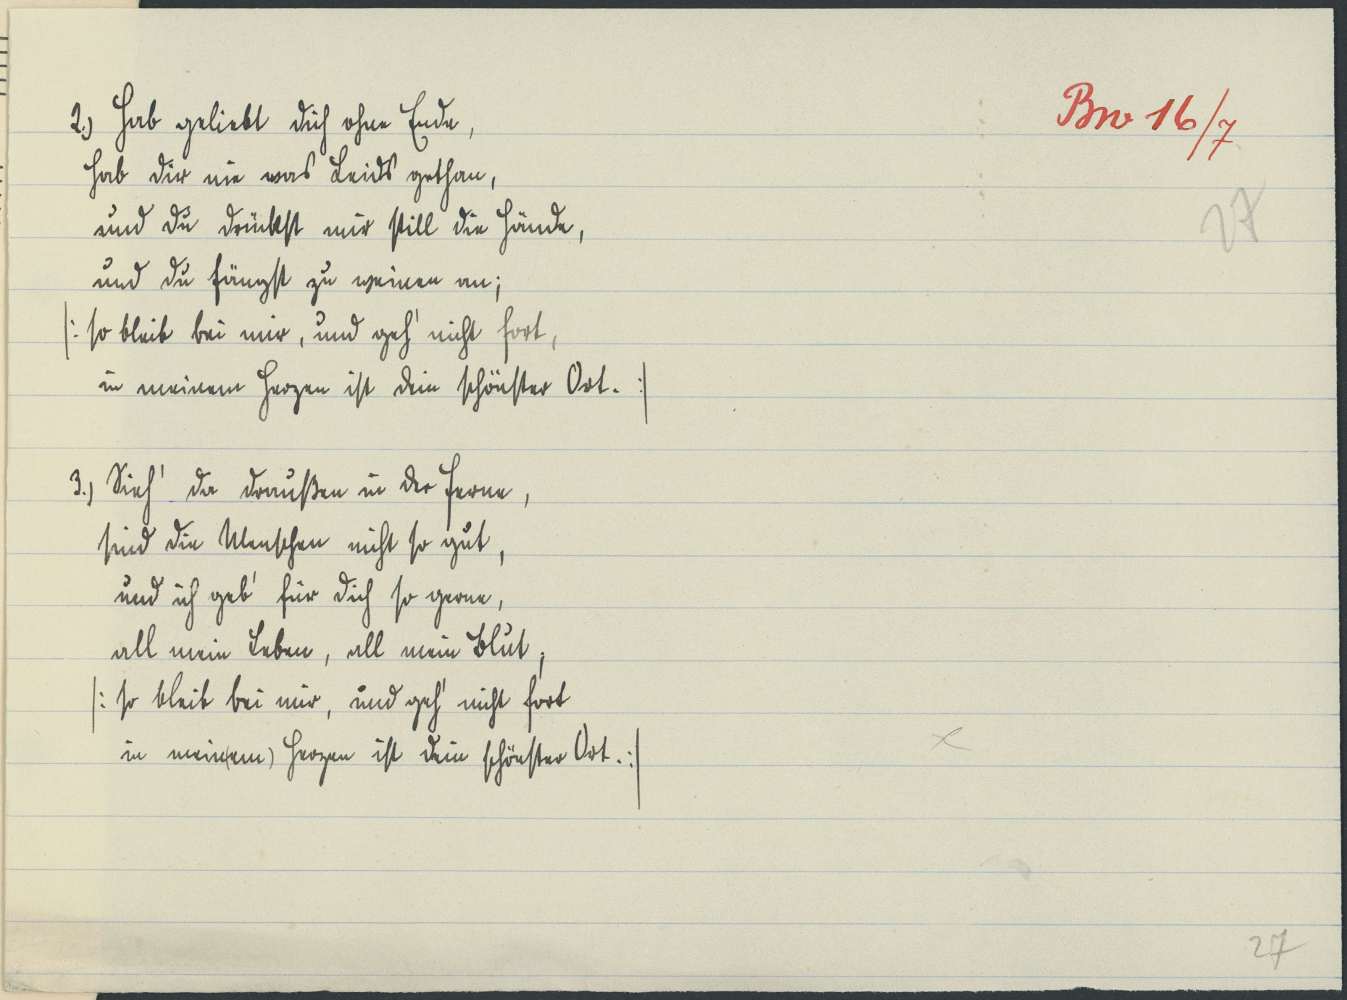 Bw 16/7
27
2.) Hab geliebt dich ohne Ende,
hab dir nie was Leids gethan,
und du drückst mir still die Hände,
und du fängst zu weinen an;
|: so bleib bei mir, und geh' nicht fort,
in meinem Herzen ist dein schönster Ort. :|
3.) Sieh' da draußen in der Ferne,
sind die Menschen nicht so gut,
und ich geb' für dich so gerne,
all mein Leben, all mein Blut;
|: so bleib bei mir, und geh' nicht fort
in mein(em) Herzen ist dein schönster Ort. :|
27